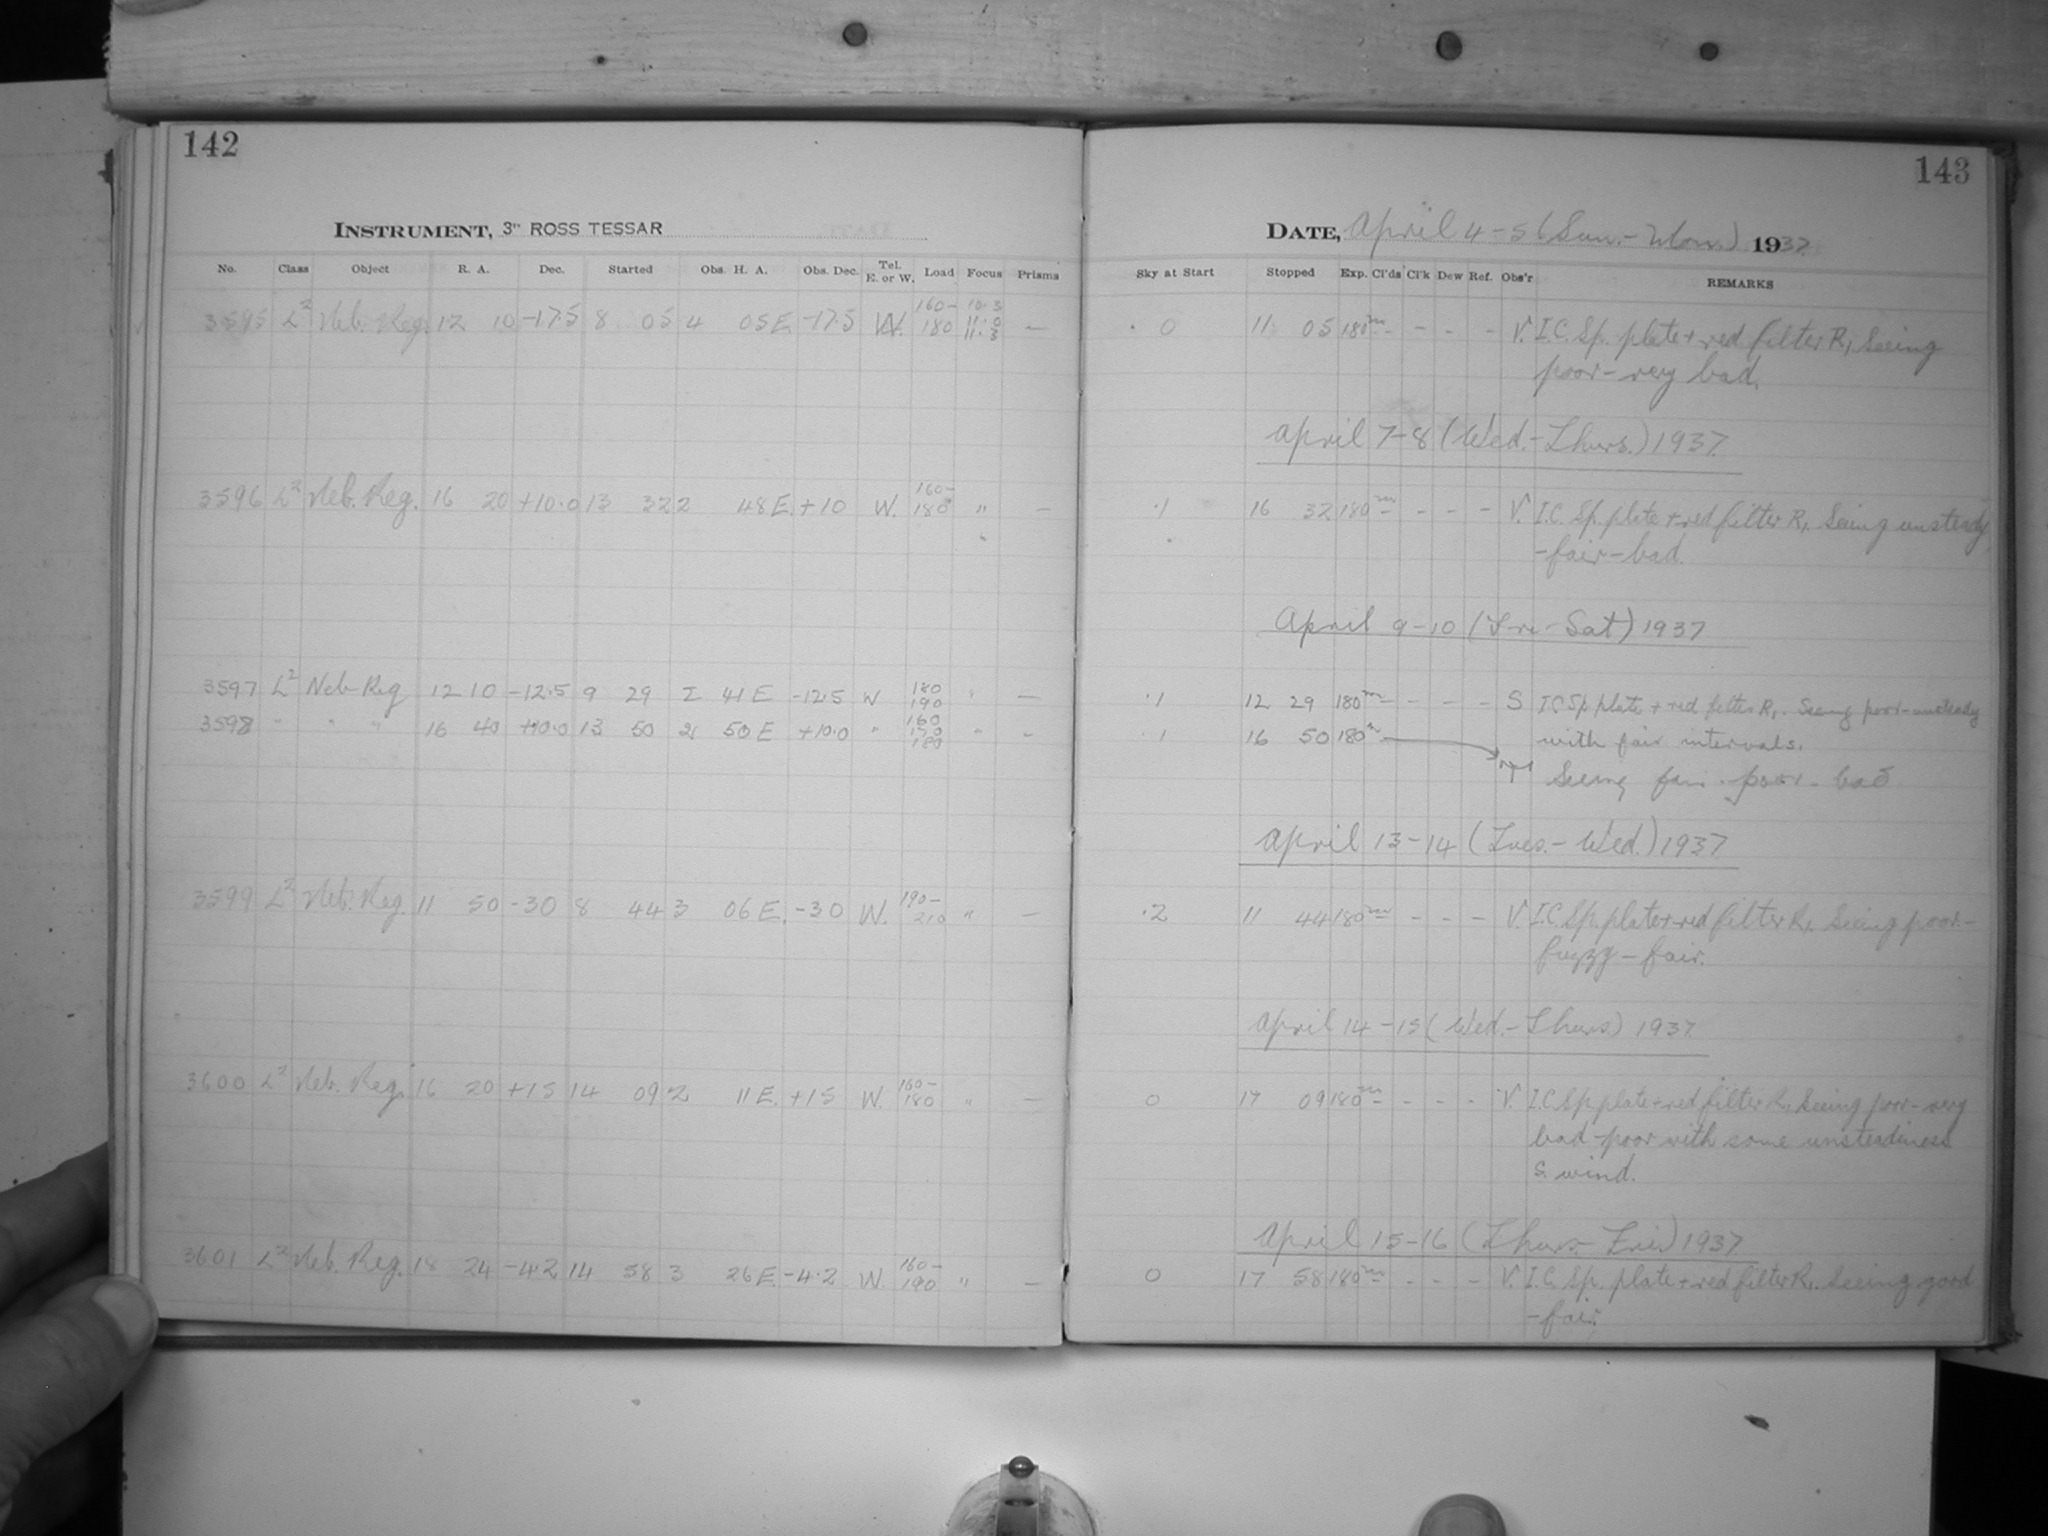 142
INSTRUMENT, 3" ROSS TESSAR
No. Class Object R. A. Dec. Started Obs. H. A. Obs. Dec. Tel. E. or W. Load Focus Prisms
3595 L² Neb. Reg. 12 10 -17.5 8 05 4 05 E. -17.5 W. 160- 180 10.3 11.0 11.3 —
3596 L² Neb. Reg. 16 20 +10.0 13 32 2 48 E. +10 W. 160- 180 " —
3597 L² Neb Reg 12 10 -12.5 9 29 2 41 E -12.5 W 180 190 " —
3598 " " " 16 40 +10.0 13 50 2 50 E +10.0 " 160 170 180 " -
3599 L² Neb. Reg. 11 50 -30 8 44 3 06 E. -30 W. 190- 210 " —
3600 L² Neb. Reg. 16 20 +15 14 09 2 11 E. +15 W. 160- 180 " —
3601 L² Neb. Reg. 18 24 -4.2 14 58 3 26 E. -4.2 W. 160- 190 " —
143
DATE, April 4-5 (Sun.-Mon.) 1937
Sky at Start Stopped Exp. Cl'ds Cl'k Dew Ref. Obs'r REMARKS
.0 11 05 180ᵐ - - - - V. I.C. Sp. plate + red filter R₁ Seeing
poor - very bad.
April 7-8 (Wed.-Thurs.) 1937
.1 16 32 180ᵐ - - - - V. I.C. Sp. plate + red filter R₁. Seeing unsteady
-fair-bad.
April 9-10 (Fri-Sat) 1937
.1 12 29 180ᵐ - - - - S IC Sp plate + red filter R₁. Seeing poor-unsteady
with fair intervals.
.1 16 50 180ᵐ
Seeing fair - poor - bad
April 13-14 (Tues.-Wed.) 1937
.2 11 44 180ᵐ - - - - V. I.C. Sp. plate + red filter R₁. Seeing poor-
fuzzy - fair.
April 14-15 (Wed.-Thurs) 1937
0 17 09 180ᵐ - - - - V. I.C. Sp. plate + red filter R₁ Seeing poor - very
bad - poor with some unsteadiness
S. wind.
April 15-16 (Thurs-Fri) 1937
0 17 58 180ᵐ - - - - V. I.C. Sp. plate + red filter R₁. Seeing good
-fair.